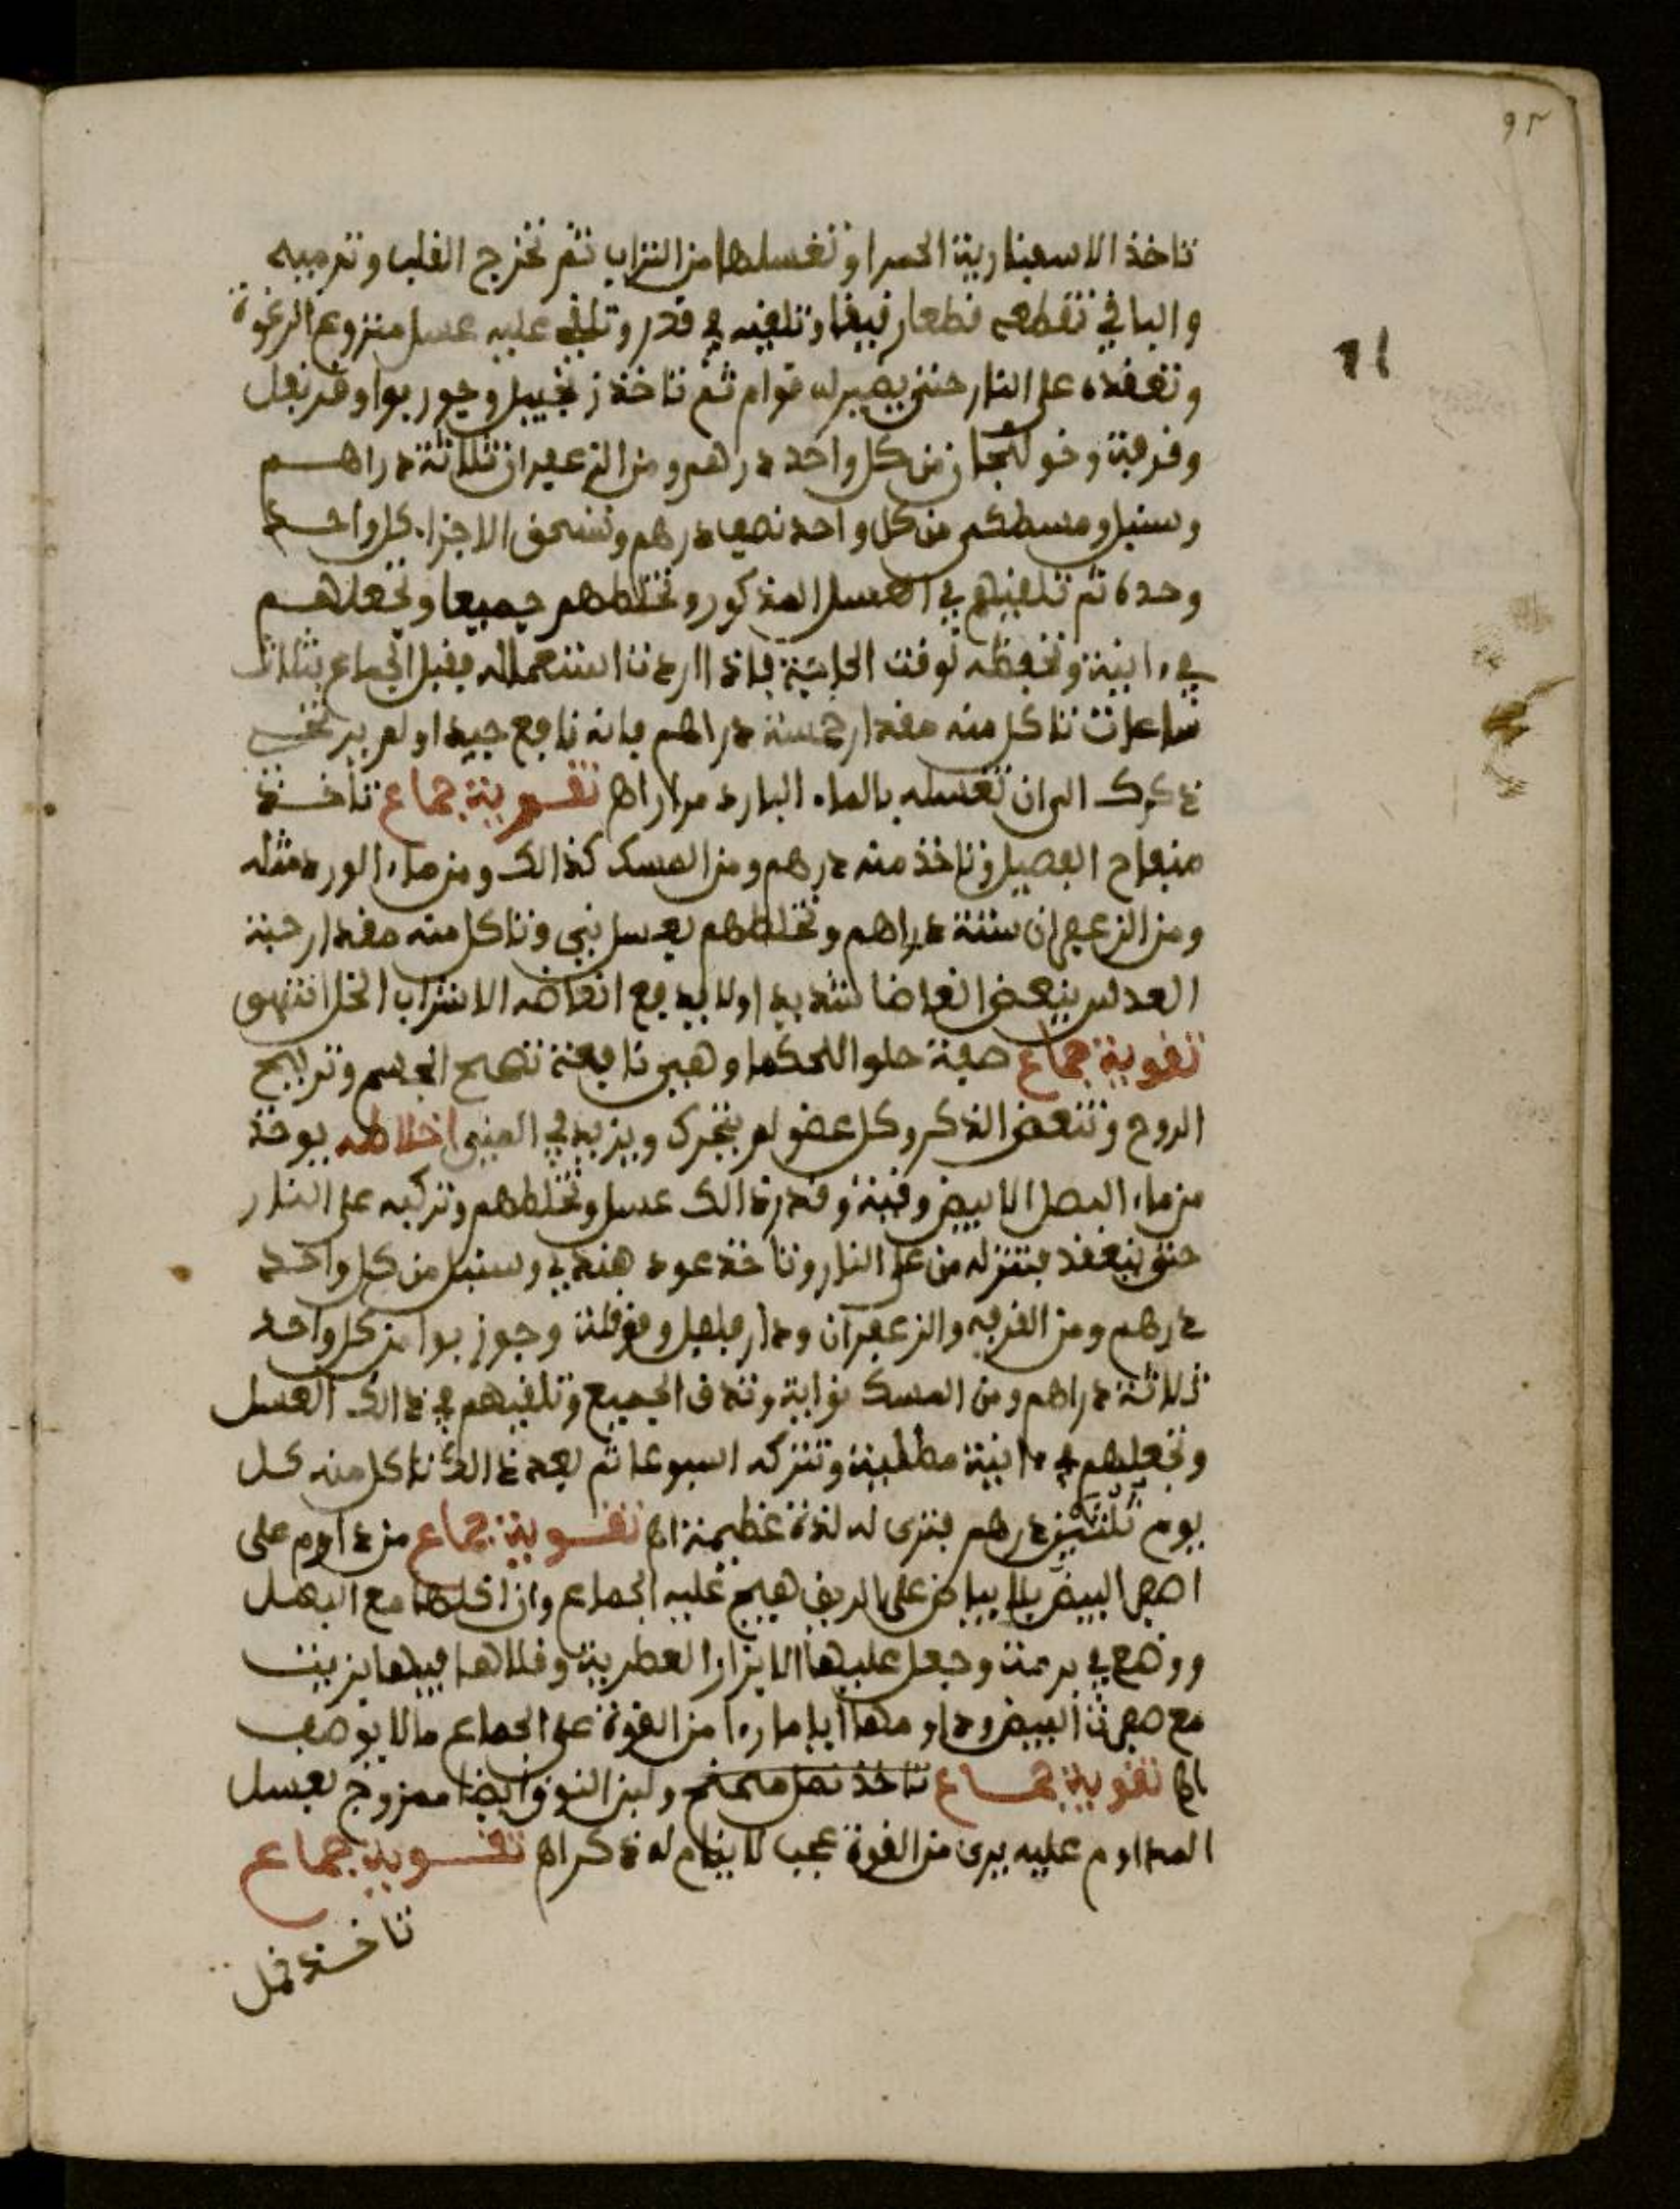 ٩٢
تاخذ الاسفنارية الحمرا وتغسلها من التراب ثم تخرج القلب وترميه
والباقي تقطعه قطعا رقيقا وتلقيه في قدر وتلقي عليه عسل منزوع الرغوة
11
وتعقده على النار حتى يصير له قوام ثم تاخذ زنجبيل وجوز بوا وقرنفل
وقرفة وخولنجان من كل واحد درهم ومن الزعفران ثلاثة دراهم
وسنبل ومسطكى من كل واحد نصف درهم وتسحق الاجزاء كل واحد
وحده ثم تلقيهم في العسل المذكور وتخلطهم جميعا وتجعلهم
في ءانية وتحفظه لوقت الحاجة فاذا اردت استعماله فقبل الجماع بثلاث
ساعات تاكل منه مقدار خمسة دراهم فانه نافع جيد اولم يرتخي
ذكرك الى ان تغسله بالماء البارد مرارا اه تقوية جماع تاخذ
منفاح الفصيل وتاخذ منه درهم ومن المسك كذالك ومن ماء الورد مثله
ومن الزعفران ستة دراهم وتخلطهم بعسل ني وتاكل منه مقدار حبة
العدس ينعض انعاضا شديدا ولا يدفع انعاضه الا شراب الخل انتهى
تقوية جماع صفة حلوا للحكما وهي نافعة تصحح الجسم وتريح
الروح وتنعض الذكر وكل عضو لم يتحرك ويزيد في المني اخلاطه يوخذ
من ماء البصل الابيض وقية وقدر ذالك عسل وتخلطهم وتركبه على النار
حتى ينعقد فتنزله من على النار وتاخذ عود هندي وسنبل من كل واحد
درهم ومن القرفه والزعفران ودار فلفل وقرفلة وجوز بوا من كل واحد
ثلاثة دراهم ومن المسك نواية وتدق الجميع وتلقيهم في ذالك العسل
وتجعلهم في ءانية مطلية وتتركه اسبوعا ثم بعد ذالك تاكل منه كل
يوم ثلثين درهم فترى له لذة عظيمة اه تقوية جماع من داوم على
اصفر البيض بلا بياض على الريق هيج عليه الجماع وان اخلطها مع البصل
ووضع في برمة وجعل عليها الابزار العطرية وقلاها فيها بزيت
مع صفرة البيض وداو منها اياما رءا من القوة على الجماع ما لا يوصف
اه تقوية جماع تاخذ نصل ولبن النوق ايضا ممزوج بعسل
المداوم عليه يرى من القوة عجب لا ينام له ذكر اه تقوية جماع
تاخذ